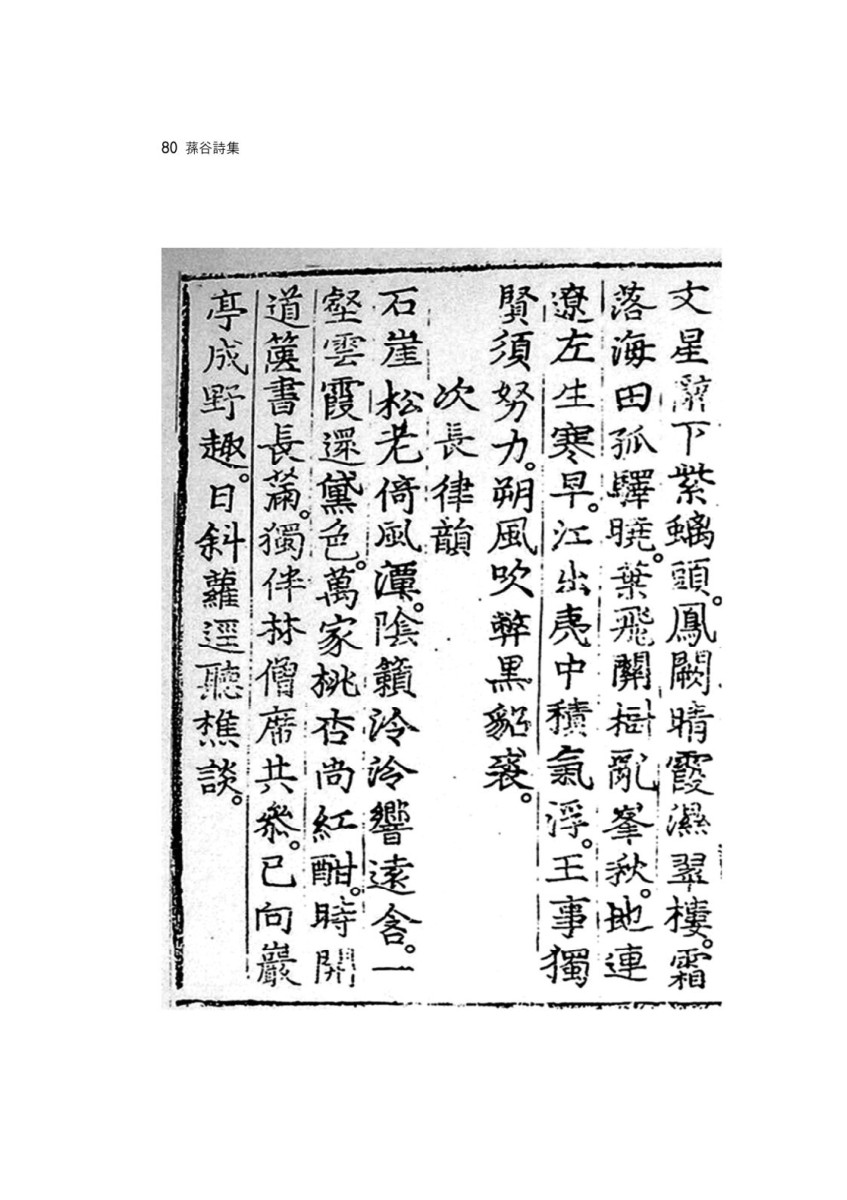 80 蓀谷詩集
文星辭下紫螭頭。鳳闕晴霞濕翠樓。霜
落海田孤驛曉。葉飛關樹亂峯秋。地連
遼左生寒早。江出夷中積氣浮。王事獨
賢須努力。朔風吹弊黑貂裘。
次長律韻
石崖松老倚風潭。陰籟泠泠響遠含。一
壑雲霞還黛色。萬家桃杏尚紅酣。時開
道篋書長滿。獨伴林僧席共參。已向巖
亭成野趣。日斜蘿逕聽樵談。